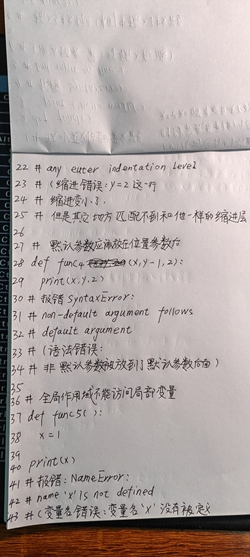 22 # any outer indentation level
23 # (缩进错误: y=2 这一行
24 # 缩进变小了.
25 # 但是其它地方匹配不到和他一样的缩进层
26
27 # 默认参数应该放在位置参数后
28 def func4 (x,y=1,2):
29 print(x,y,2)
30 # 报错 SyntaxError:
31 # non-default argument follows
32 # default argument
33 # (语法错误:
34 # 非默认参数被放到了默认参数后面)
35
36 # 全局作用域不能访问局部变量
37 def func5():
38 x=1
39
40 print(x)
41 # 报错: NameError:
42 # name 'x' is not defined
43 # (变量名错误: 变量名 'x' 没有被定